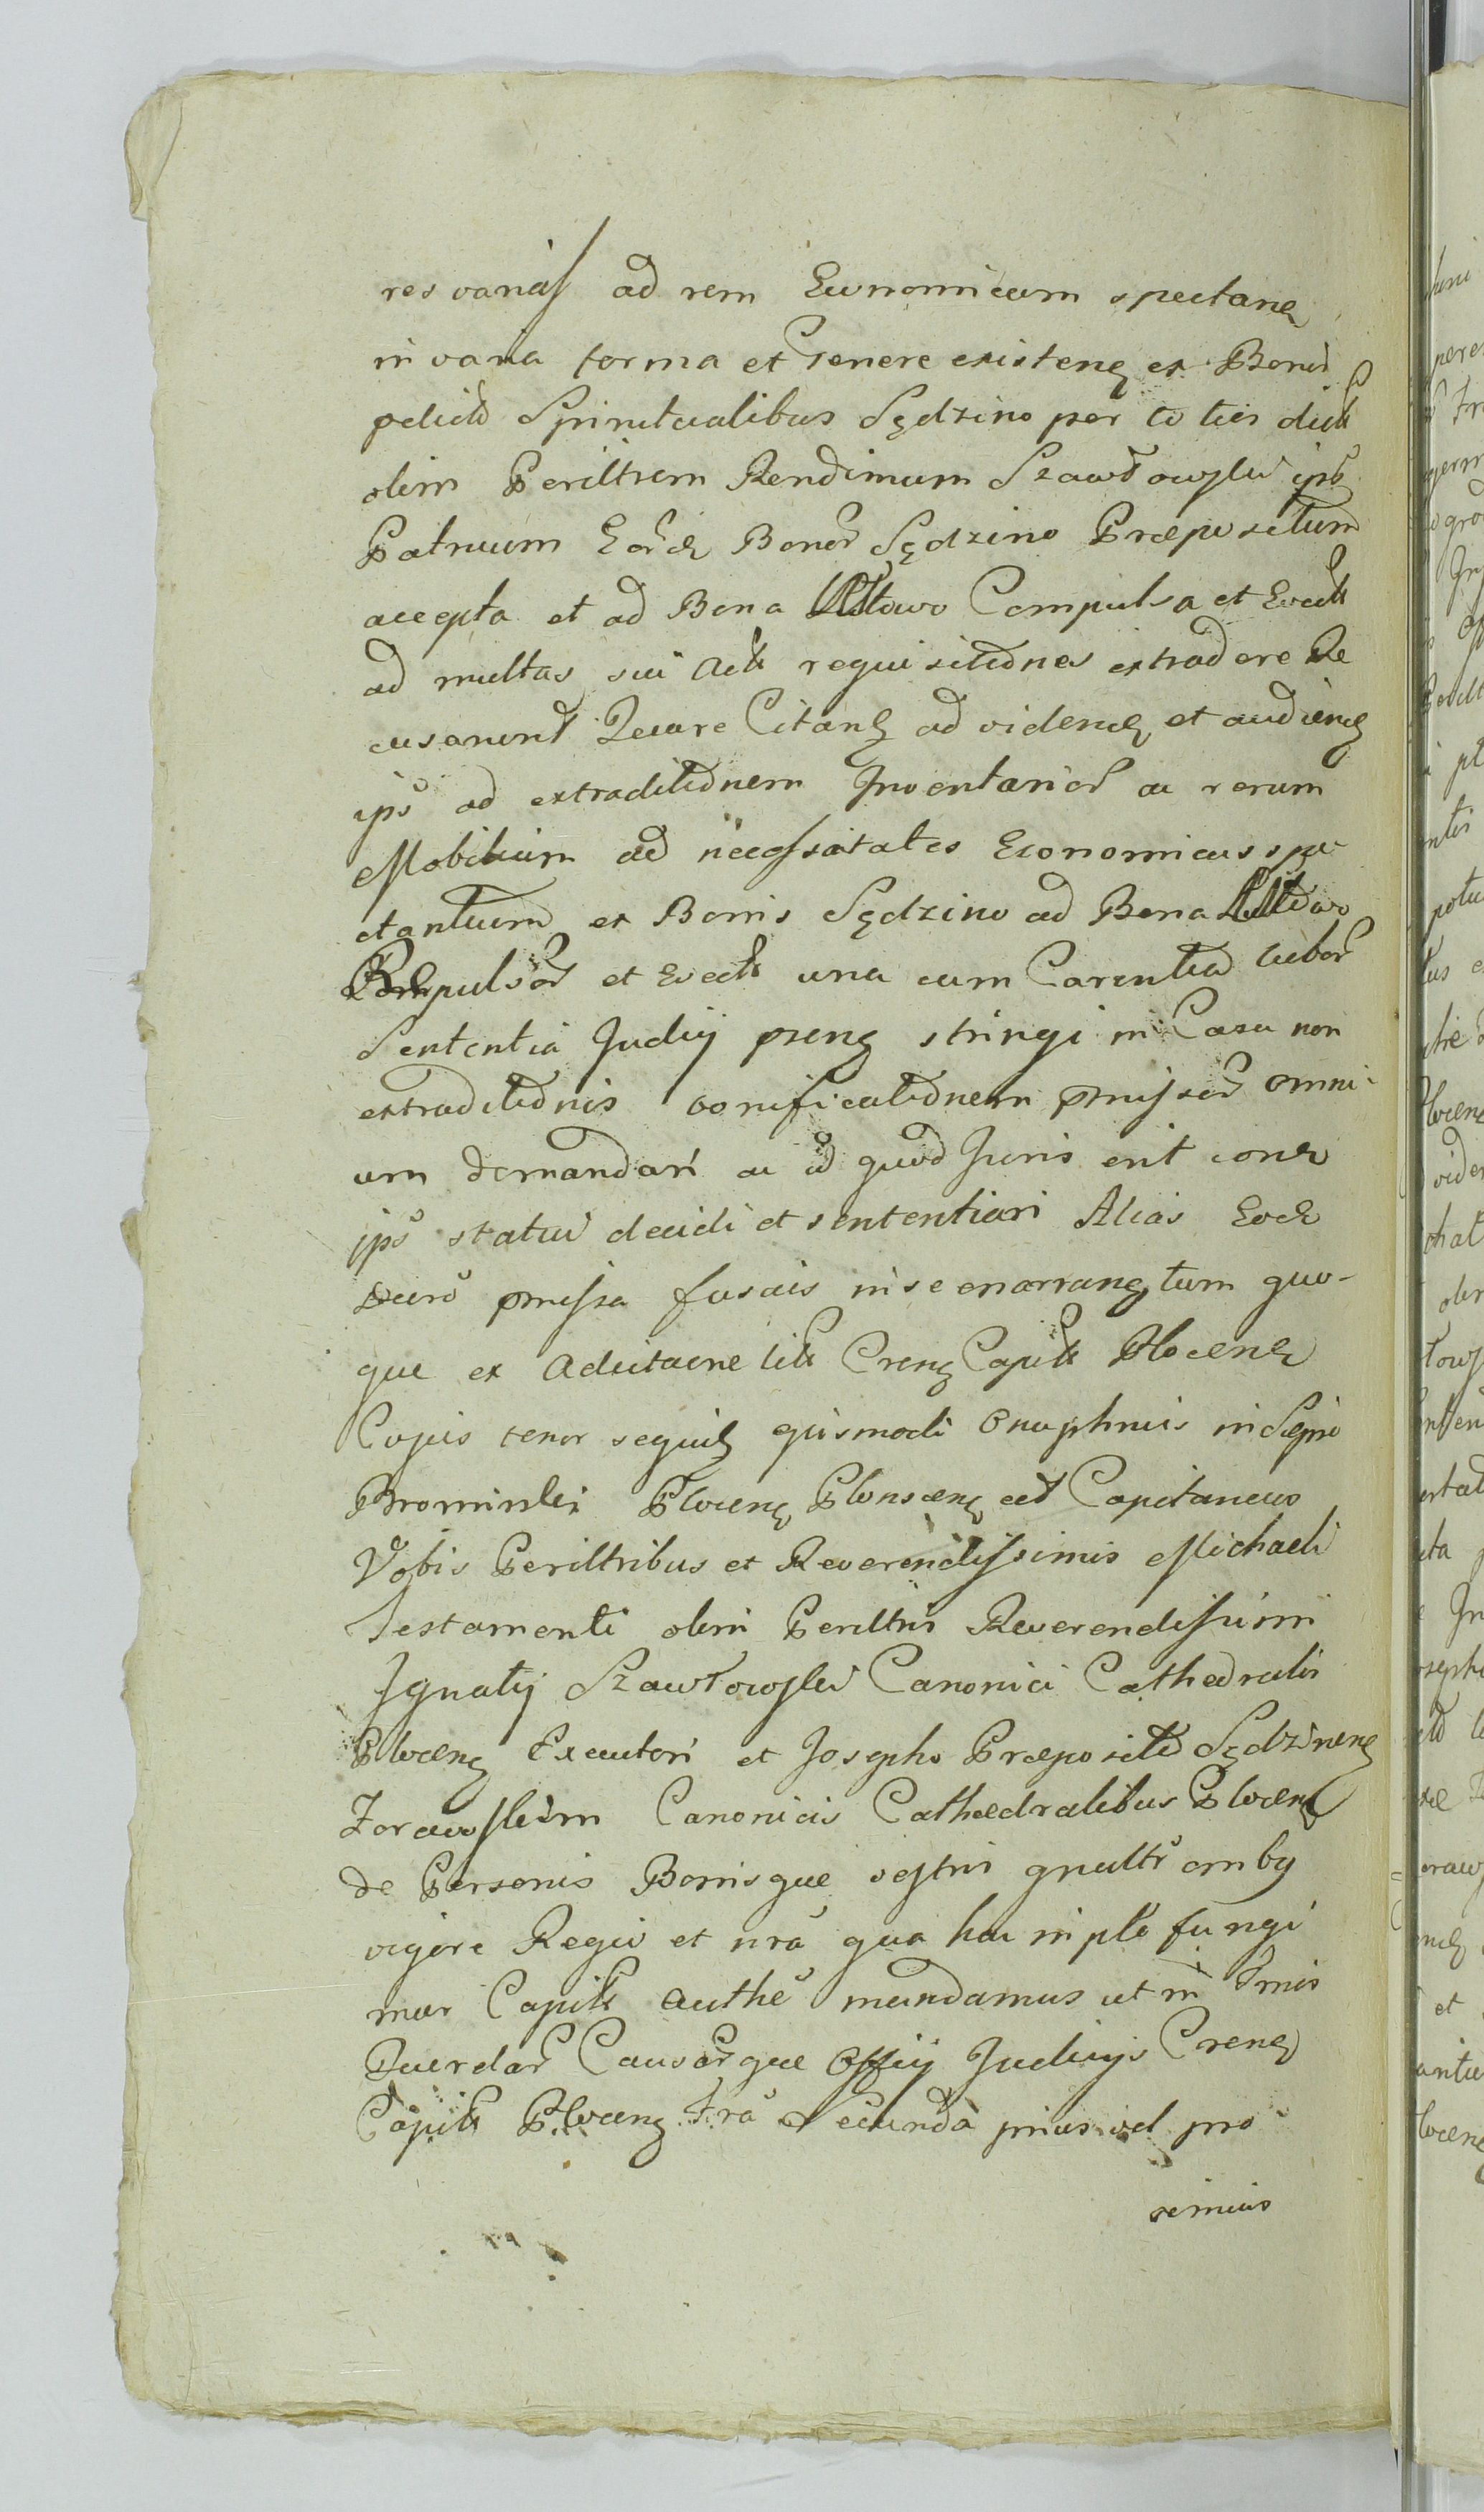 res varias ad rem Euonomicam spectanę
in varia forma et Genere existenę ex Bonis
pdictis Spiritualibus Sędzino per to ties dict
olim Perilltrem Rendimum Szawłowski ips
Patruum Eorde Bonor Sędzino Præpositum
accepta et ad Bona Compulsa et Evect
ad multas sui Act requisitiones extradere Re
cusarunt Quare Citanę ad videndę et audiendę
ips ad extraditionem Inventarior ac rerum
Mobilium ad necessitates Economicas spe
ctantium ex Bonis Sędzino ad Bona
Compulsor et Evect una cum Carentia lubor
Sententia Judicij prenę stringi in Casu non
extraditionis bonificationem pmissor omni
um demandari ac id quod Juris erit conę
ips statui decidi et sententiari Alias Eode
Decro pmissa fusius in se enarrantę tum quo-
que ex Adcitaone lit Crenę Capit Plocenę
Cujus tenor sequitę ejusmodi Onuphrius in Sępno
Bromirski Plocenę Plonscenę ect Capitaneus
Vobis Perilltribus et Reverendissimis Michaeli
Testamenti olim Perilltris Reverendissimi
Ignatij Szawłowski Canonici Cathedralis
Plocenę Executori et Josepho Præposito Sędzinenę
Zorawskim Canonicis Cathedralibus Plocenę
de Personis Bonisque vestris gnaltr omby
vigore Regio et nra qua hac in pte fungi
mur Capit authe mandamus ut in Tmis
Querelar Causarque Officij Judicijs Crenę
Capit Plocenę Fra Secunda prius vel pro
ximius